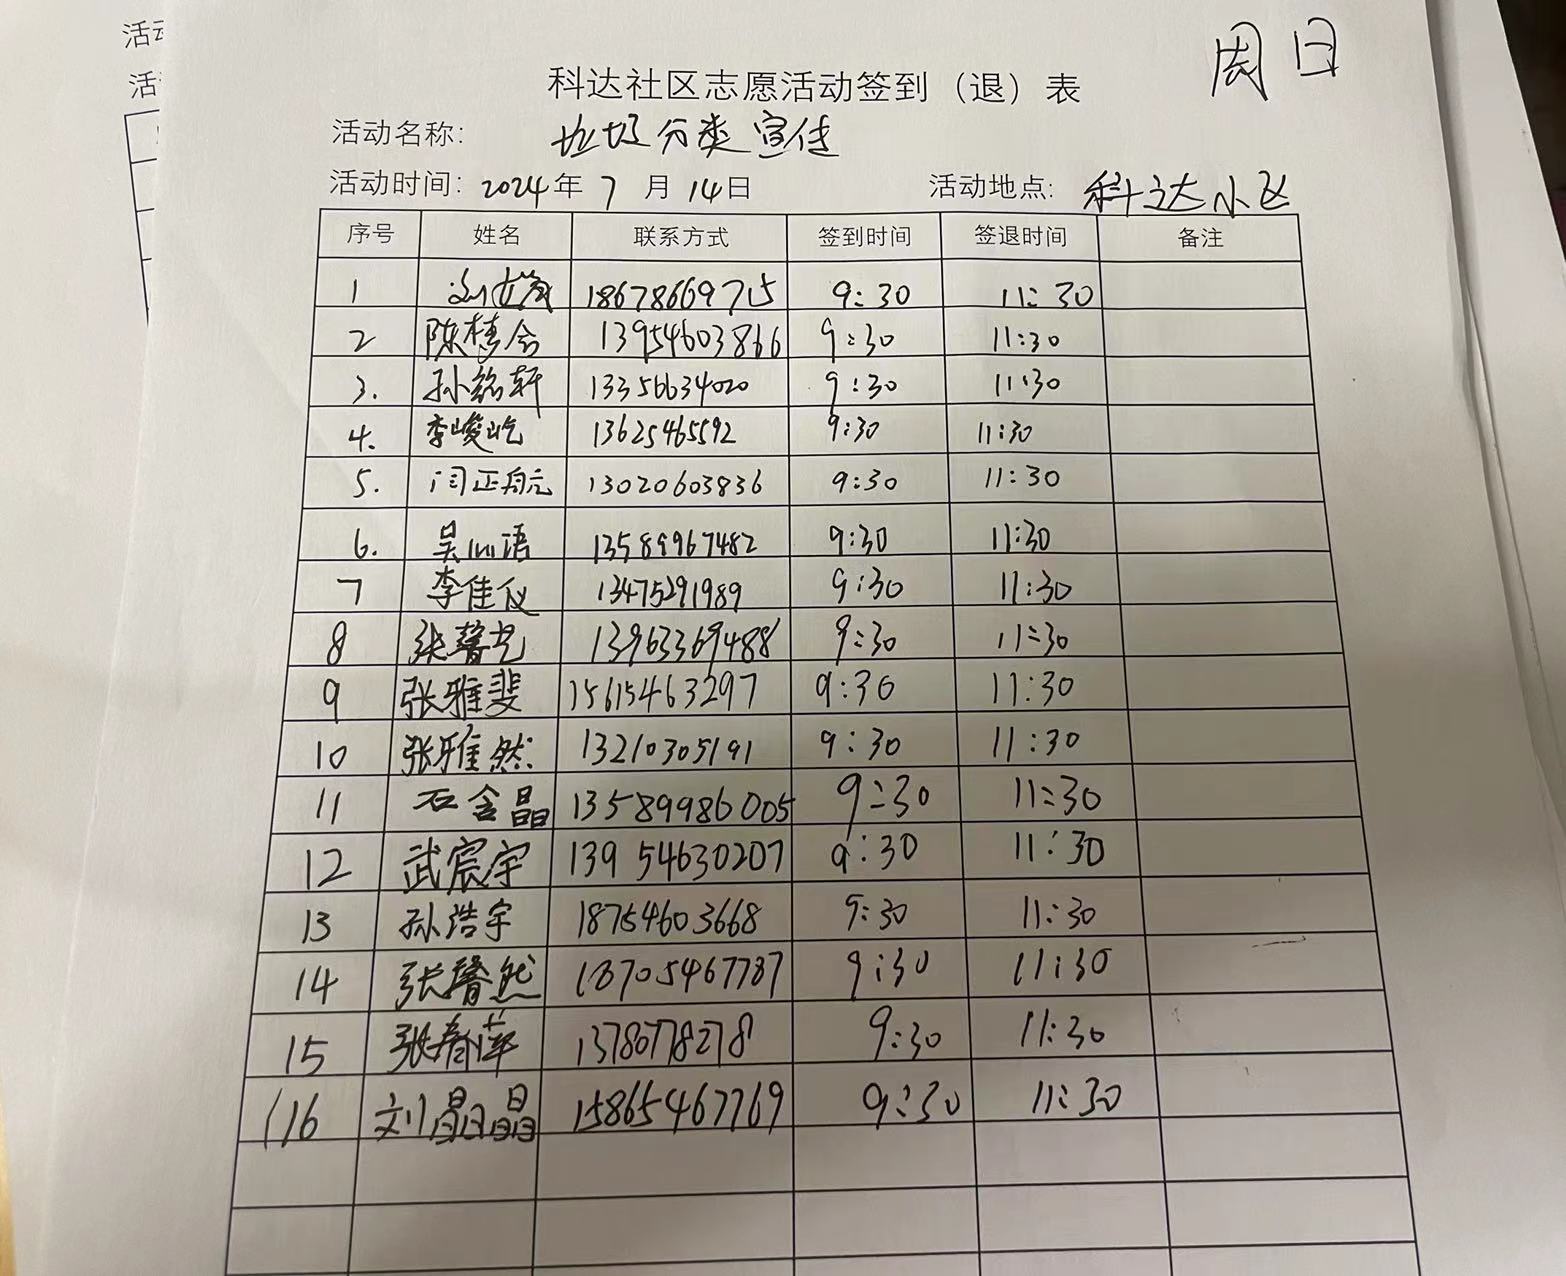 活动
活
周日
科达社区志愿活动签到（退）表
活动名称： 垃圾分类宣传
活动时间：2024年 7 月 14日 活动地点：科达小区
序号 姓名 联系方式 签到时间 签退时间 备注
1 18678669715 9:30 11:30
2 陈梦含 13954603866 9:30 11:30
3. 孙铭轩 13356634020 9:30 11:30
4. 李峻屹 13625465592 9:30 11:30
5. 闫正航元 13020603836 9:30 11:30
6. 吴沁语 13589967482 9:30 11:30
7 李佳仪 13475291989 9:30 11:30
8 张馨艺 13963369488 9:30 11:30
9 张雅斐 15615463297 9:30 11:30
10 张雅然 13210305191 9:30 11:30
11 石含晶 13589986005 9:30 11:30
12 武宸宇 13954630207 9:30 11:30
13 孙浩宇 18754603668 9:30 11:30
14 张馨然 18705467787 9:30 11:30
15 张春萍 13780778278 9:30 11:30
16 刘晶晶 15865467769 9:30 11:30